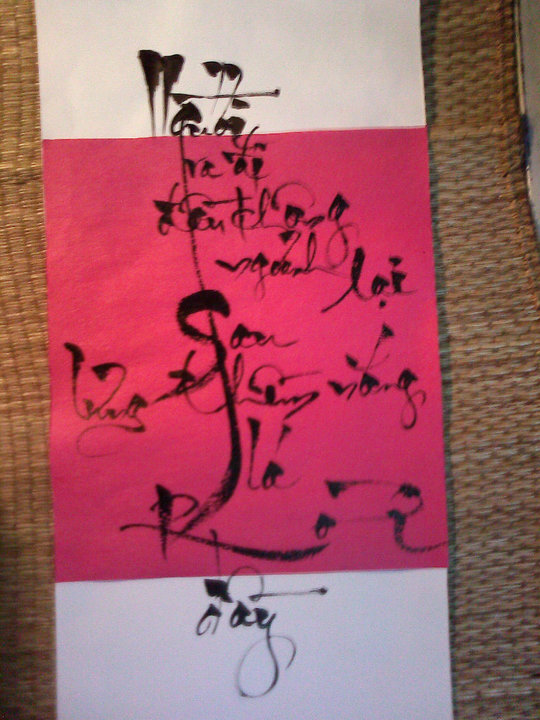 Người
ra đi
đầu không
ngoảnh lại
Sau
lưng thềm nắng
lá
Rơi
đầy